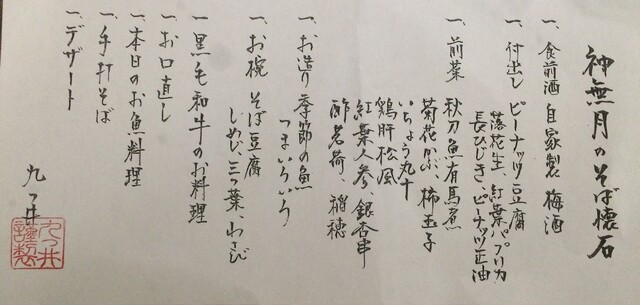 神無月のそば懐石
一、食前酒 自家製 梅酒
一、付出し ピーナッツ豆腐
落花生、紅葉パプリカ
長ひじき、ピーナッツ正油
一、前菜 秋刀魚有馬煮
菊花かぶ、柿玉子
いちょう丸十
鶏肝松風
紅葉人参、銀杏串
酢茗荷、稲穂
一、お造り 季節の魚
つまいろいろ
一、お椀 そば豆腐
しめじ、三つ葉、わさび
一、黒毛和牛のお料理
一、お口直し
一、本日のお魚料理
一、手打そば
一、デザート
九つ井
九つ井
謹製